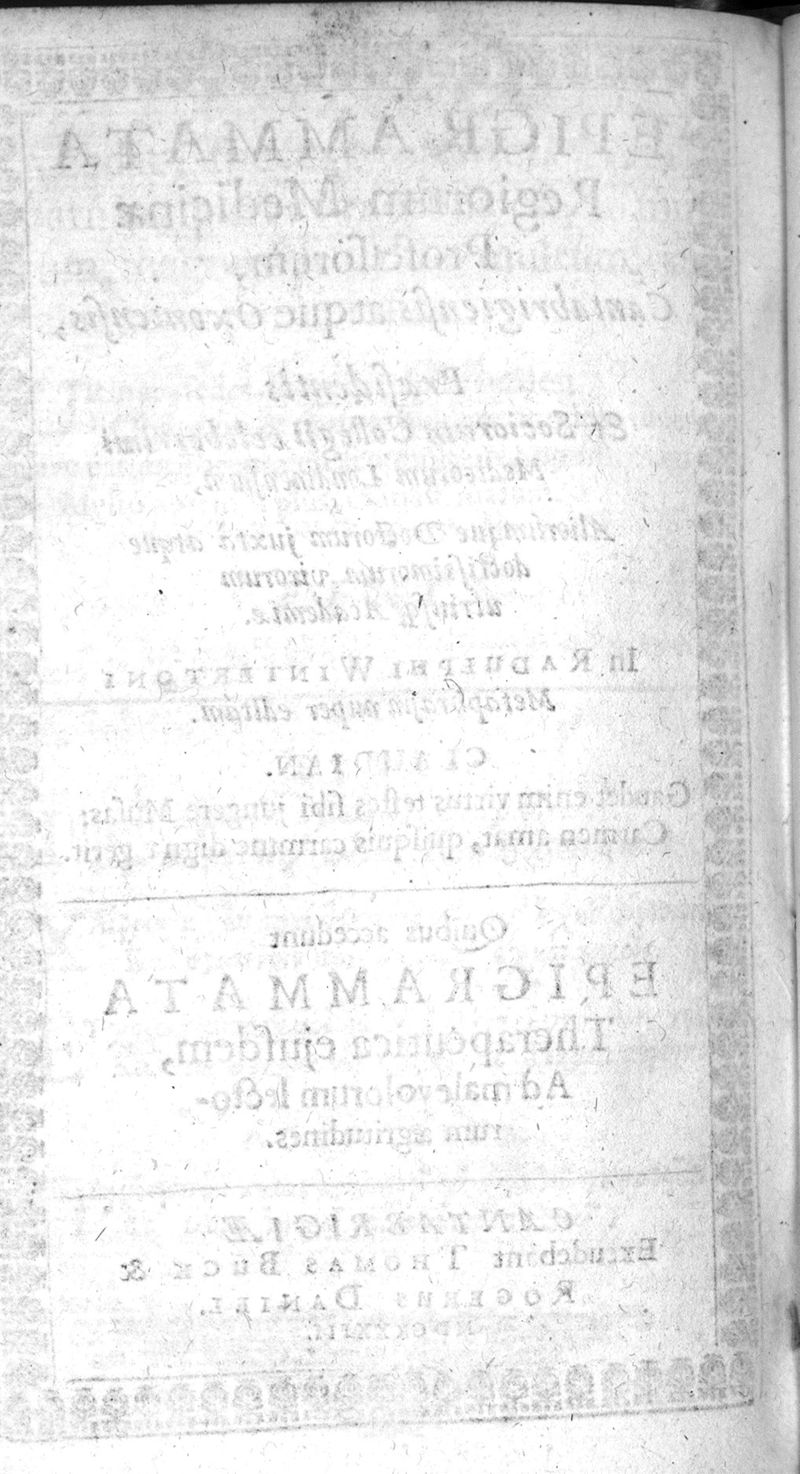 EPIGRAMMATA
Regiorum Medicinæ
Professorum,
Cantabrigiensis atque Oxoniensis,
Præsidentis
Et Sociorum Collegii celeberrimi
Medicorum Londinensium,
Aliorumque Doctorum juxtà atque
doctissimorum virorum
utriusq; Academiæ.
In RADULPHI WINTERTONI
Metaphrasin nuper editam.
CLAUDIAN.
Gaudet enim virtus testes sibi jungere Musas:
Carmen amat, quisquis carmine digna gerit.
Quibus accedunt
EPIGRAMMATA
Therapeutica ejusdem,
Ad malevolorum lecto-
rum ægritudines.
CANTABRIGIÆ
Excudebant THOMAS BUCK &
ROGERUS DANIEL.